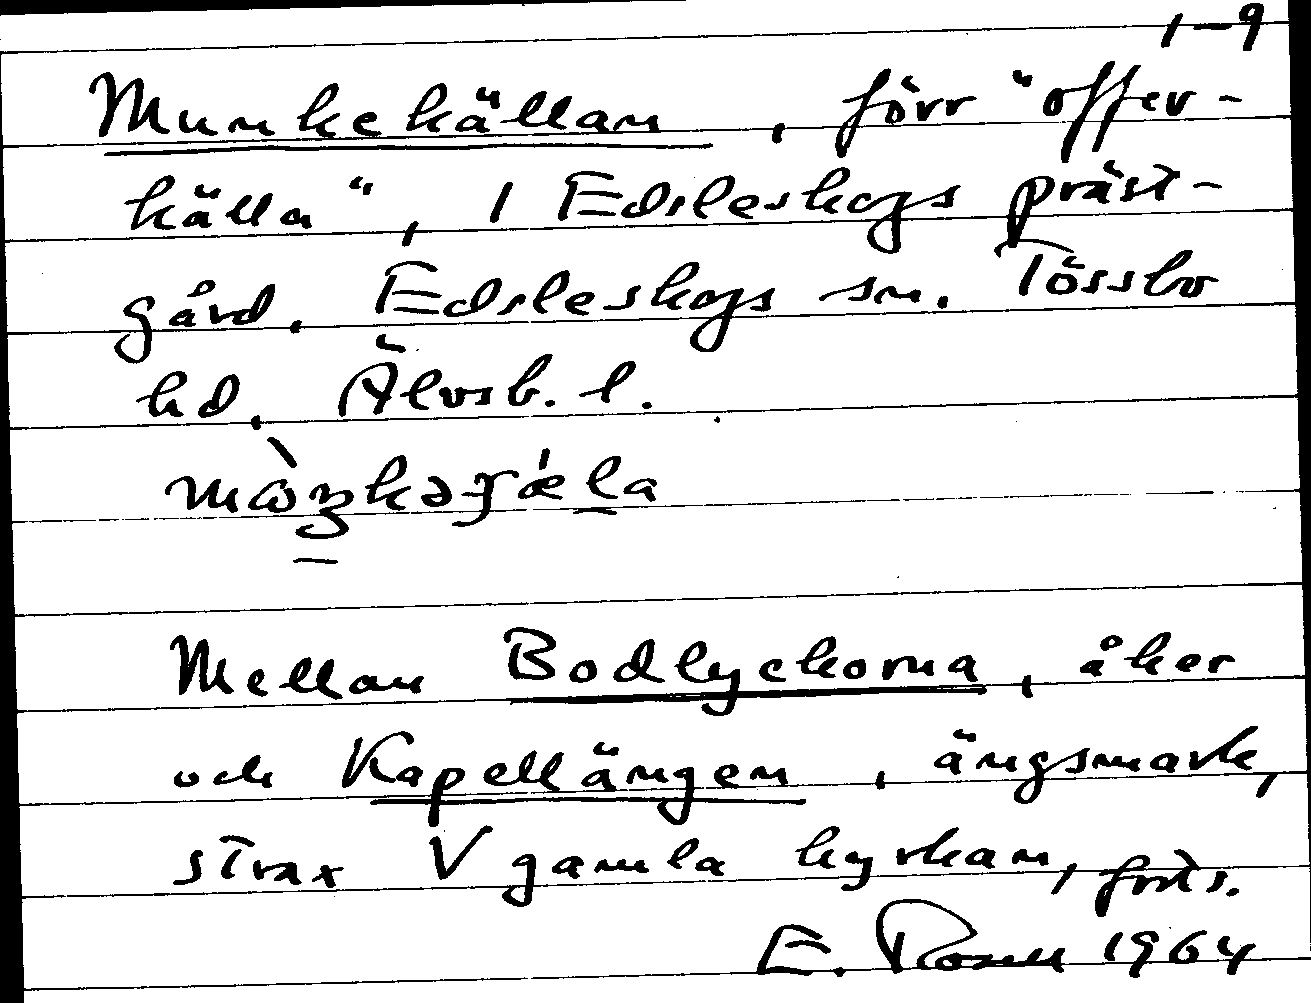 1-9
Munkekällan, förr "offer-
källa", i Edsleskogs präst-
gård. Edsleskogs sn. Tössbo
hd. Älvsb. l.
Mellan Bodlyckorna, åker
och Kapellängen, ängsmark,
strax V gamla kyrkan, forts.
E. Rosell 1964